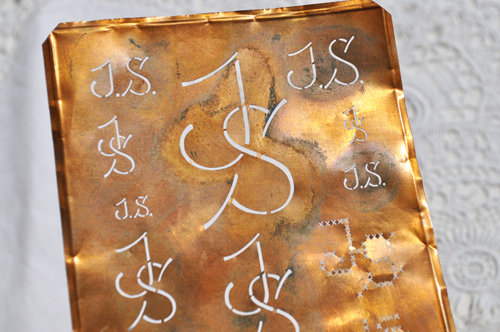 J.S.
JS
J.S.
JS
JS
J.S.
J.S.
JS
JS
JS